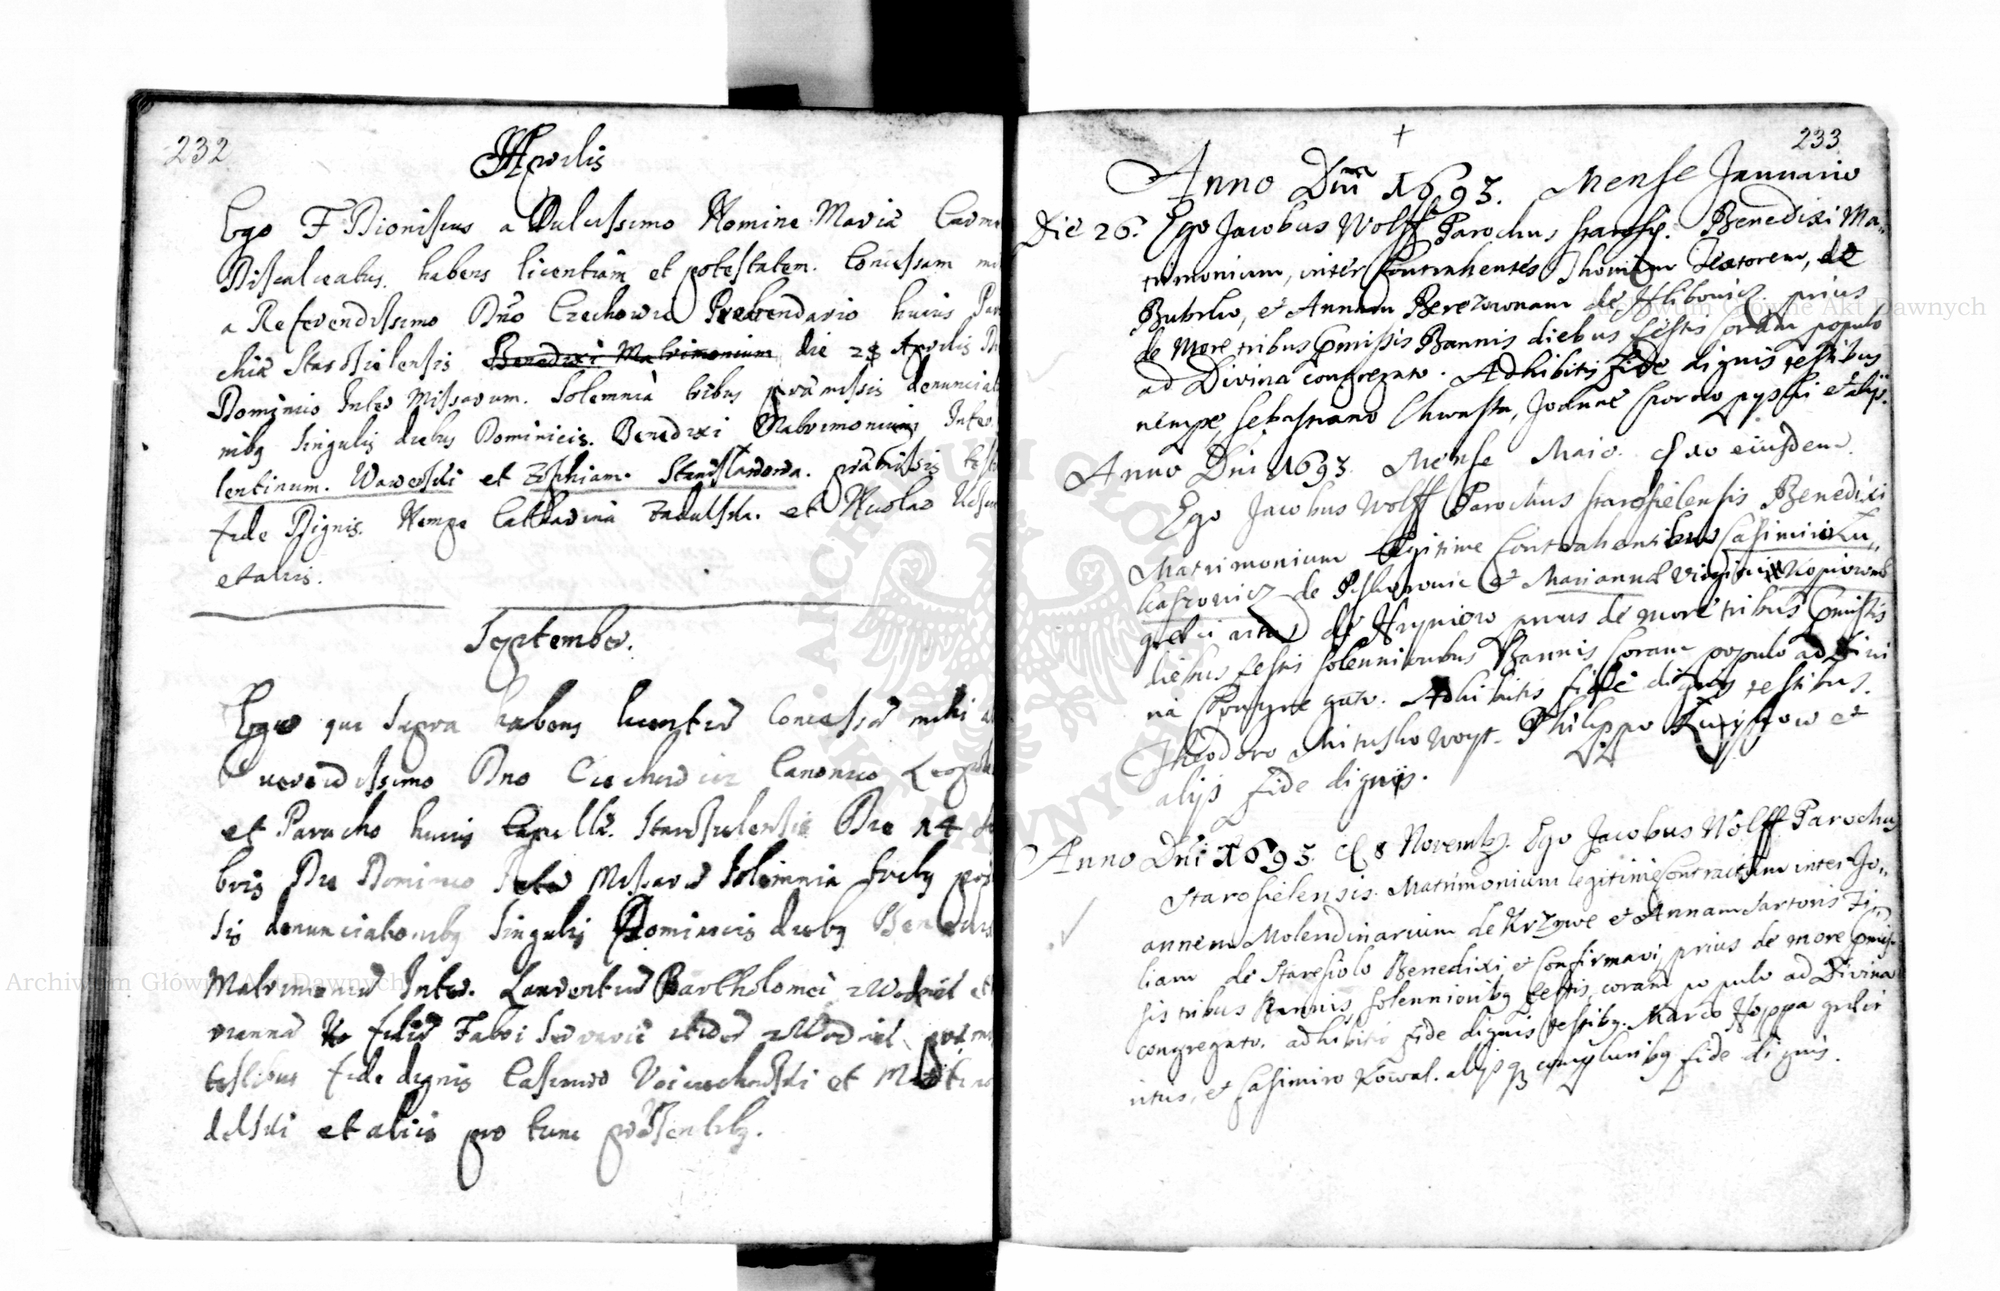 232
Aprilis
Ego F Dionisius a Dulcissimo Nomine Mariæ Carme
Discalceatus. habens licentiam et potestatem. Concessam mi
a Referendissimo Dño Czechowic Prebendario huius Par
chiæ Starosielensis Benedixi Matrimonium die 28 Aprilis Di
Dominico Inter Missarum. Solemnia tribus præmissis denunciat
nibq singulis diebus Dominicis. Benedixi Matrimonium Inter
lentinum. Waresski et Zophiam. Stanislawowa. præmissis testi
fide Dignis. Nempe Catharina et Nicolao
et aliis.
September.
Ego qui supra habens licentia Concessa mihi a
uerendissimo Dno Ciechowicz Canonico
et Parocho huius Capellæ. Starosielensis Die 14
bris Die Dominico Inter Missaru Solemnia tribq præ
sis denunciationibq singulis Dominicis diebq Benedixi
Matrimoniu Inter. Laurentiu Bartholomei et
rianna filia Fabri
testibus fide dignis Casimiro et
delski et aliis pro tunc præsentibq.
233
Anno Dni 1693. Mense Januario
Die 26. Ego Jacobus Wolff Parochus Starosie. Benedixi Ma„
trimonium, inter Contrahentes Thomam Textorem, de
Butorlio, et Annam Berezownam de Hlibowicz prius
de More tribus Emissis Bannis diebus festis coram populo
ad Divina congregato. Adhibitis fide dignis testibus
nempe, Sebastiano Chwastu, Joanne et alijs.
Anno Dni 1693. Mense Maio. d 10 eiusdem.
Ego Jacobus Wolff Parochus Starosielensis Benedixi
Matrimonium legitime Contrahentibus Casimiro Lu„
kaszowicz de et Marianna Virgine
græci ritus de Hryniow prius de more tribus Emissis
diebus festis solennioribus Bannis Coram populo ad Divi
na Congregato. Adhibitis fide dignis testibus.
Theodoro Mitusko woyt. Philippo et
alijs fide dignijs.
Anno Dni 1693. d 8 Novembr. Ego Jacobus Wolff Parochus
Starosielensis. Matrimonium legitime Contractum inter Jo„
annem Molendinarium de Krzywe et Annam Sartoris Fi„
liam de Staresiolo Benedixi, et Confirmavi, prius de more Emis„
sis tribus Bannis, solennioribq festis, coram populo ad Divina
congregato. adhibitis fide dignis testibq. Marco Hoppa græci
ritus, et Casimiro Kowal. alijsq compluribq fide dignis.
Archiwum Główne Akt Dawnych
Archiwum Główne Akt Dawnych
ARCHIWUM GŁÓWNE AKT DAWNYCH